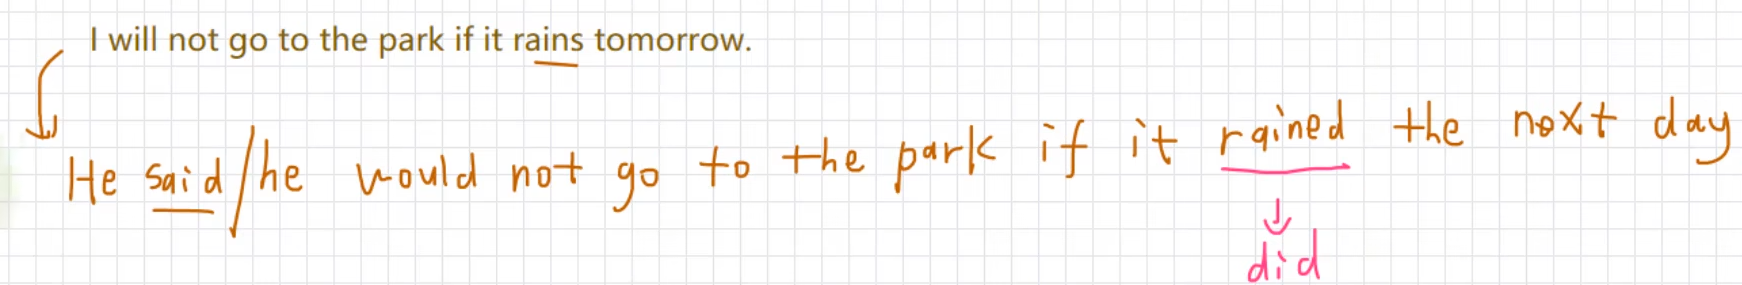 I will not go to the park if it rains tomorrow.
He said/he would not go to the park if it rained the next day
did